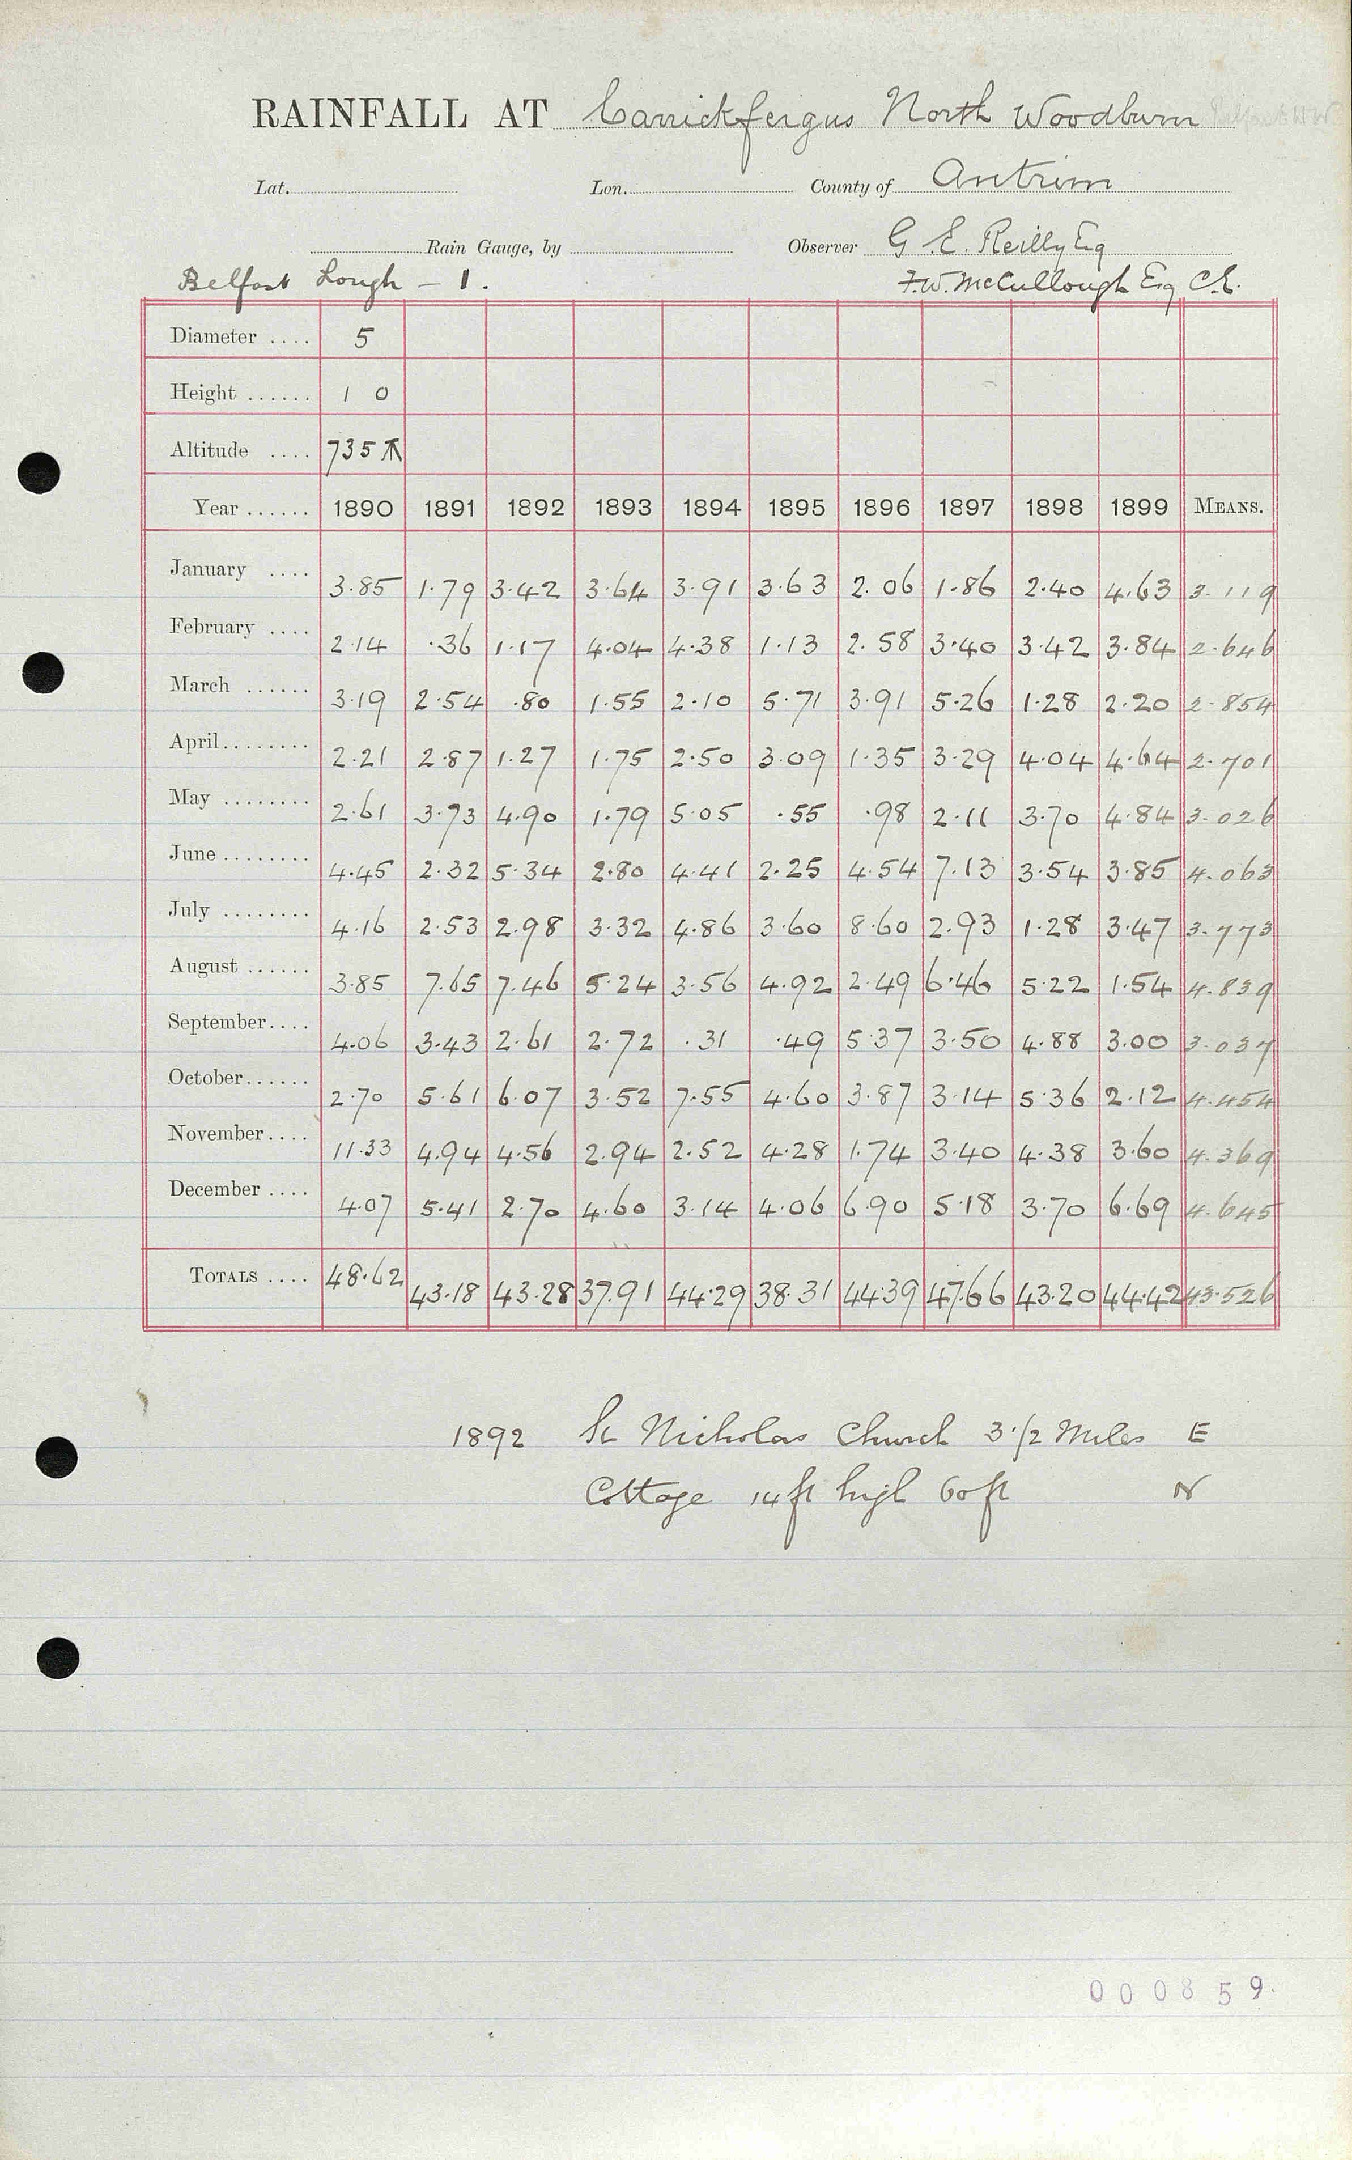 RAINFALL AT Carrickfergus North Woodburn Belfast W W
Lat. Lon. County of Antrim
Rain Gauge, by Observer G. E. Reilly Esq
Belfast Lough – 1. F.W. McCullough Esq C.E.
Diameter .... 5
Height ...... 1 0
Altitude .... 735
Year ...... 1890 1891 1892 1893 1894 1895 1896 1897 1898 1899 MEANS.
January .... 3.85 1.79 3.42 3.64 3.91 3.63 2.06 1.86 2.40 4.63 3.119
February .... 2.14 .36 1.17 4.04 4.38 1.13 2.58 3.40 3.42 3.84 2.646
March ...... 3.19 2.54 .80 1.55 2.10 5.71 3.91 5.26 1.28 2.20 2.854
April........ 2.21 2.87 1.27 1.75 2.50 3.09 1.35 3.29 4.04 4.64 2.701
May ........ 2.61 3.73 4.90 1.79 5.05 .55 .98 2.11 3.70 4.84 3.026
June ........ 4.45 2.32 5.34 2.80 4.41 2.25 4.54 7.13 3.54 3.85 4.063
July ........ 4.16 2.53 2.98 3.32 4.86 3.60 8.60 2.93 1.28 3.47 3.773
August ...... 3.85 7.65 7.46 5.24 3.56 4.92 2.49 6.46 5.22 1.54 4.839
September.... 4.06 3.43 2.61 2.72 .31 .49 5.37 3.50 4.88 3.00 3.037
October...... 2.70 5.61 6.07 3.52 7.55 4.60 3.87 3.14 5.36 2.12 4.454
November.... 11.33 4.94 4.56 2.94 2.52 4.28 1.74 3.40 4.38 3.60 4.369
December .... 4.07 5.41 2.70 4.60 3.14 4.06 6.90 5.18 3.70 6.69 4.645
TOTALS .... 48.62 43.18 43.28 37.91 44.29 38.31 44.39 47.66 43.20 44.42 43.526
1892 St Nicholas Church 3 1/2 Miles E
Cottage 14 ft high 60 ft N
000859